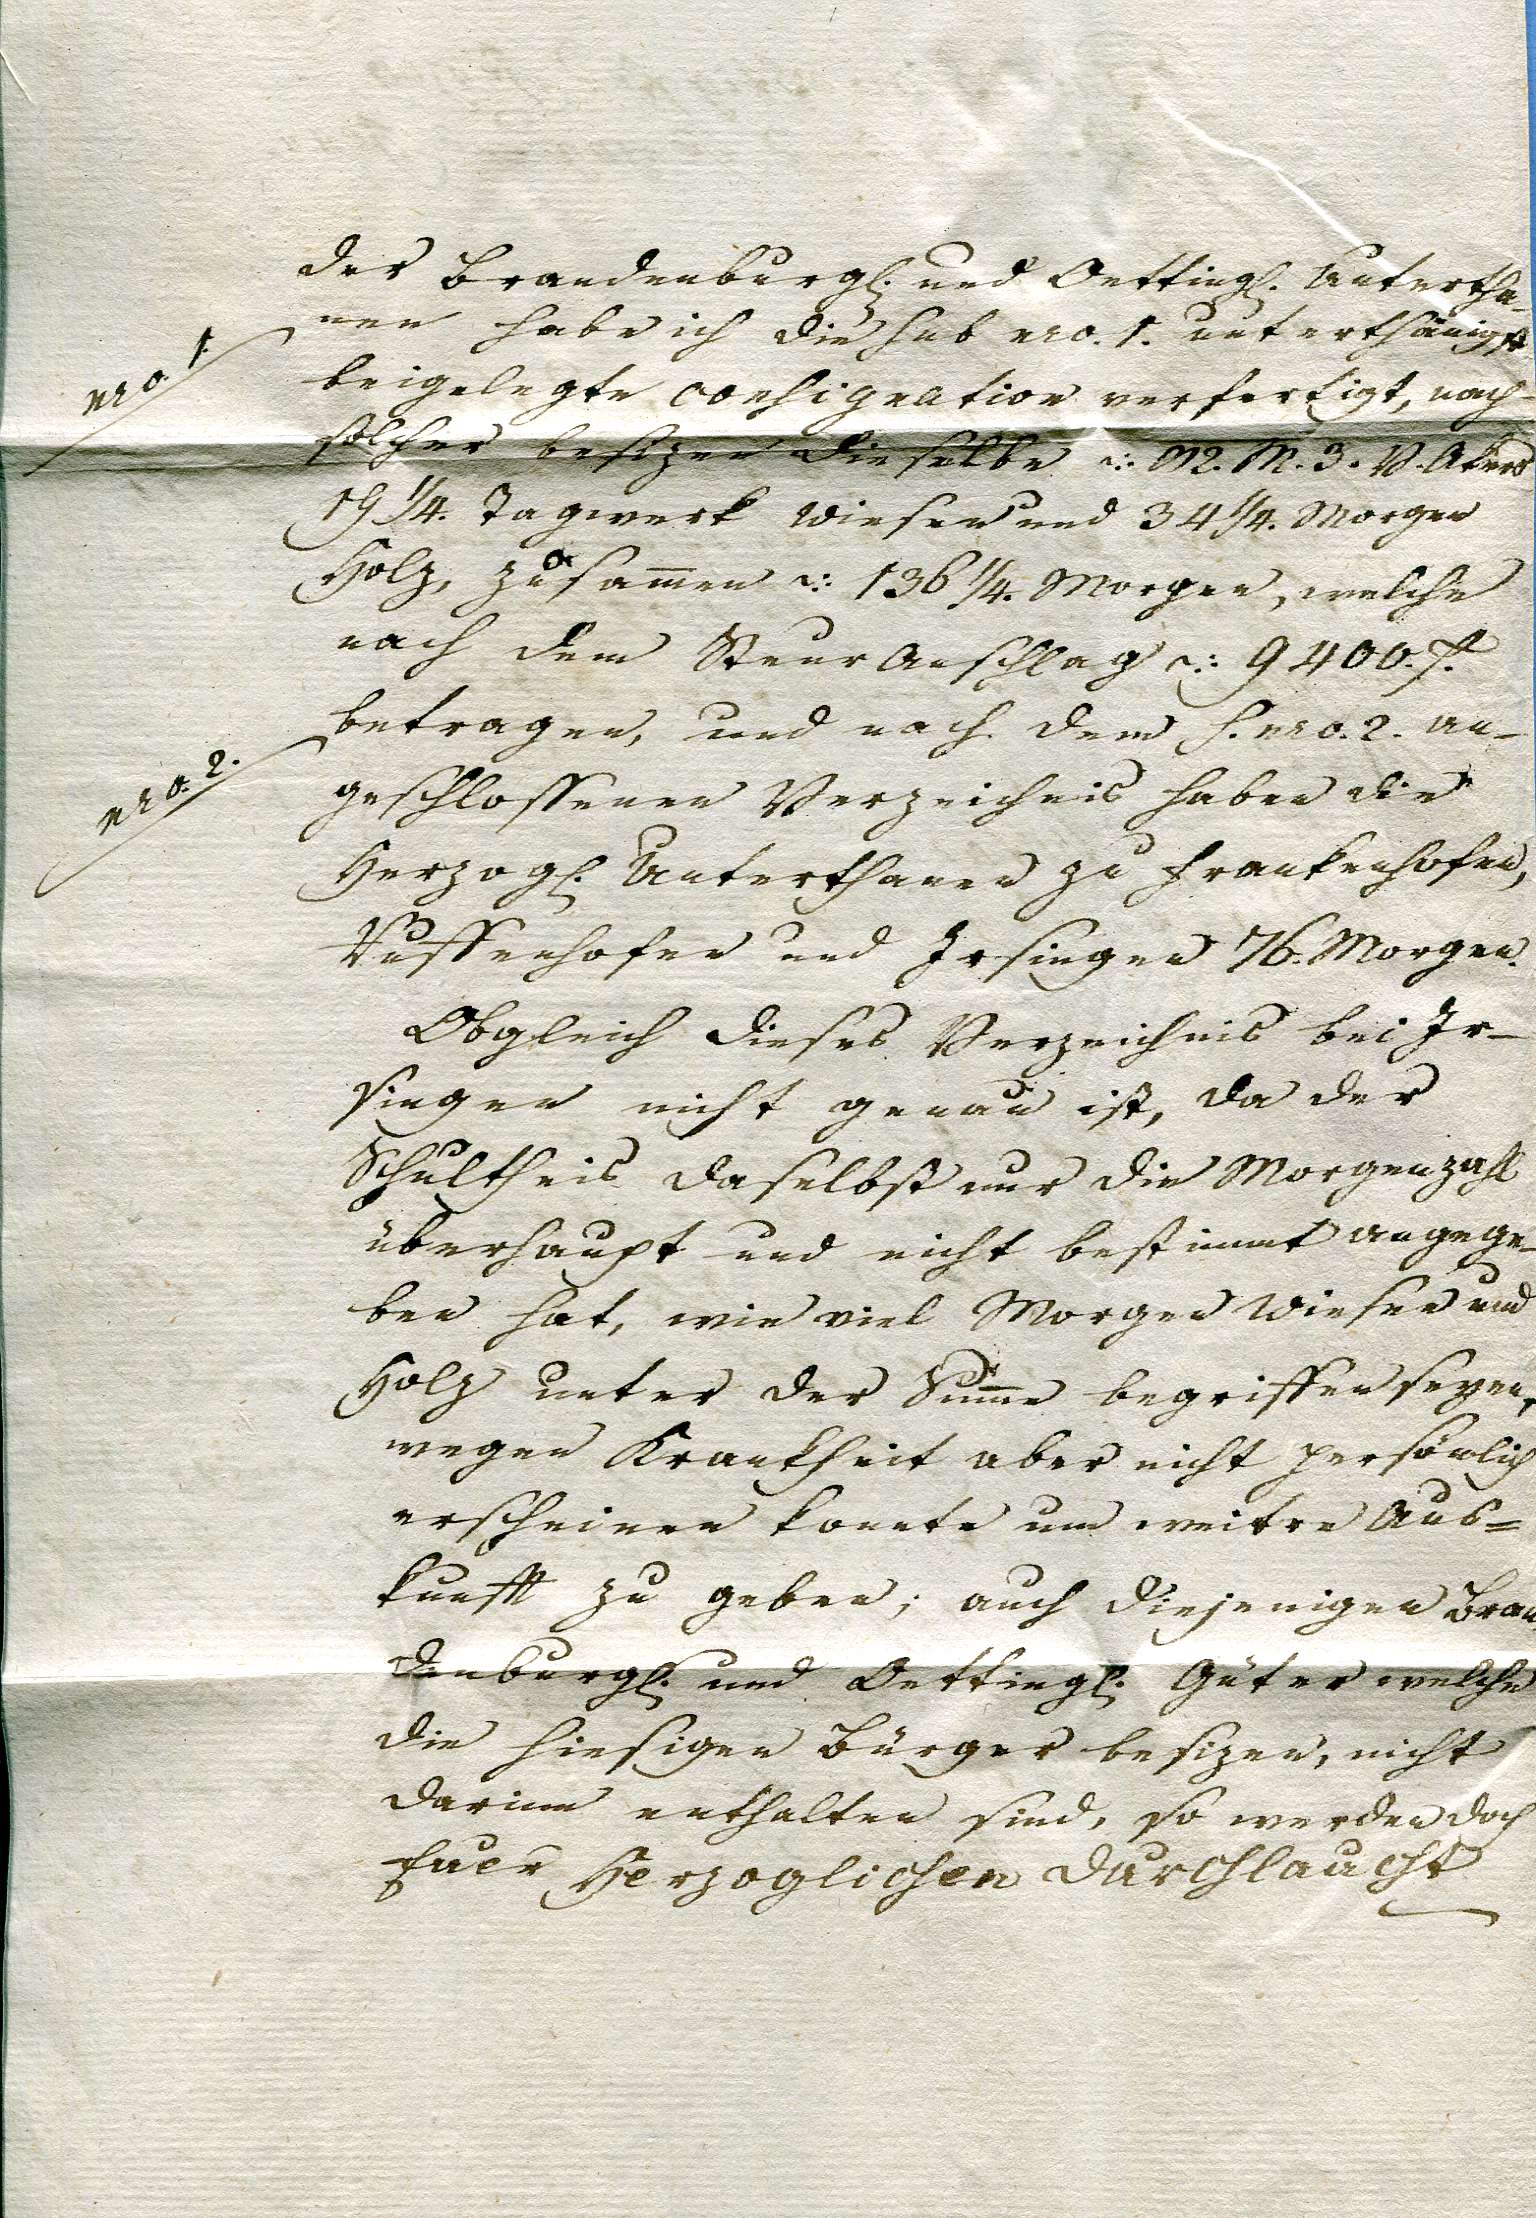 der Brandenburgl. und Oettingl. Untertha-
nen habe ich die sub nro. 1. unterthänigst
nro. 1.
beigelegte Consignation verfertigt, nach
solcher besizen dieselbe 82. M. 3. V. Akers
19 1/4. Tagwerk Wiesen und 34 1/4. Morgen
Holz, zusammen 136 1/4. Morgen, welche
nach dem Steur Anschlag 9400. f.
betragen, und nach dem s. nro. 2. an-
nro. 2.
geschlossenen Verzeichnis haben die
Herzogl. Unterthanen zu Frankenhofen,
und Irsingen 76. Morgen.
Obgleich dieses Verzeichnis bei Ir-
singen nicht genau ist, da der
Schultheis daselbst nur die Morgenzahl
überhaupt und nicht bestimmt angege-
ben hat, wie viel Morgen Wiesen und
Holz unter der Summe begriffen seyen,
wegen Krankheit aber nicht persönlich
erscheinen konnte um weitre Aus-
kunfft zu geben; auch diejenigen Bran
denburgl. und Oettingl. Güter welche
die hiesigen Bürger besizen, nicht
darinn enthalten sind, so werden doch
Euer Herzoglichen Durchlaucht